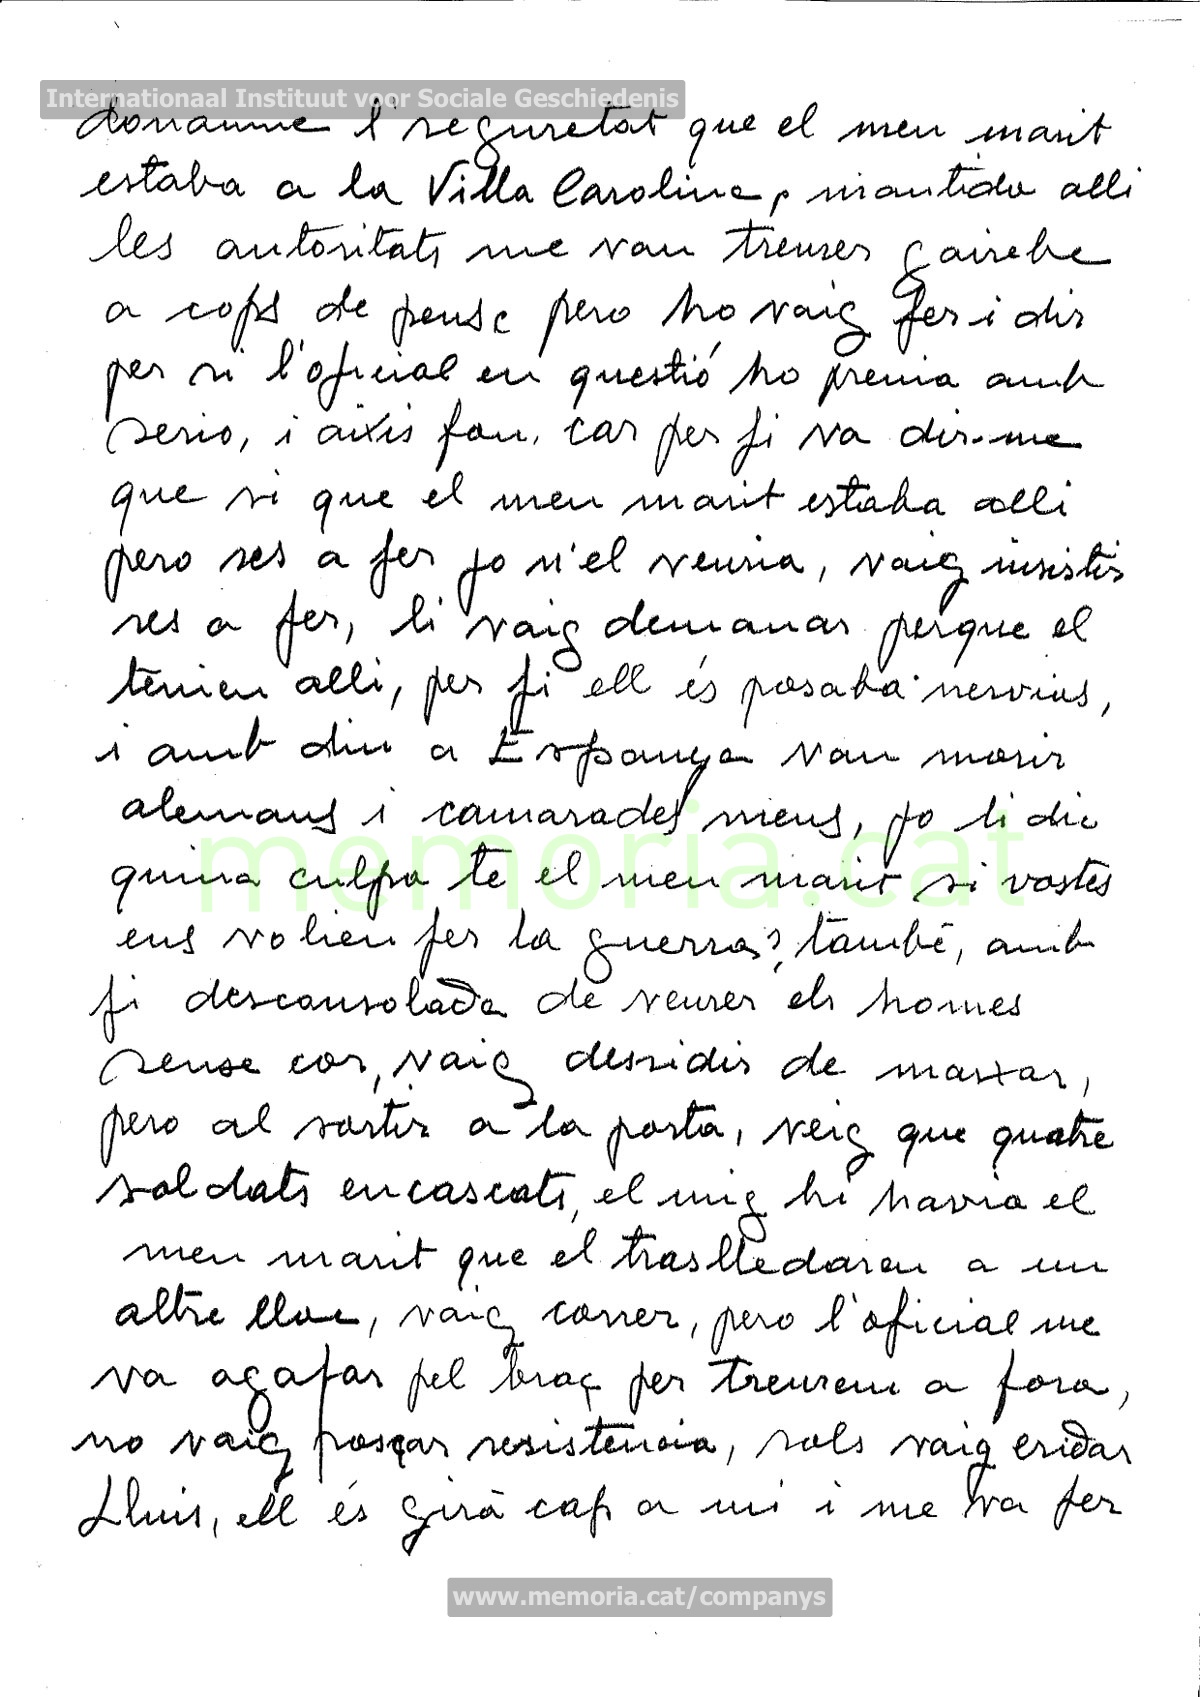 Internationaal Instituut voor Sociale Geschiedenis
donanme l'seguretat que el meu marit
estaba a la Villa Caroline, mantido alli
les autoritats me van treurer gairebe
a cops de peus pero ho vaig fer i dir
per si l'oficial en questió ho prenia amb
serio, i aixis fou. car per fi va dir-me
que si que el meu marit estaba alli
pero res a fer jo n'el veuria, vaig insistir
res a fer, li vaig demanar perque el
tenien alli, per fi ell és posaba nervios,
i amb diu a Espanya van morir
alemans i camarades meus, jo li dic
quina culpa te el meu marit si vostes
ens volien fer la guerra?, també, amb
fi desconsolada de veurer els homes
sense cor, vaig dessidir de marxar,
pero al sortir a la porta, veig que quatre
soldats encascats, el mig hi havia el
meu marit que el traslledaren a un
altre lloc, vaig correr, pero l'oficial me
va agafar pel braç per treurem a fora,
no vaig posçar resistencia, sols vaig cridar
Lluis, ell és girà cap a mi i me va fer
memoria.cat
www.memoria.cat/companys